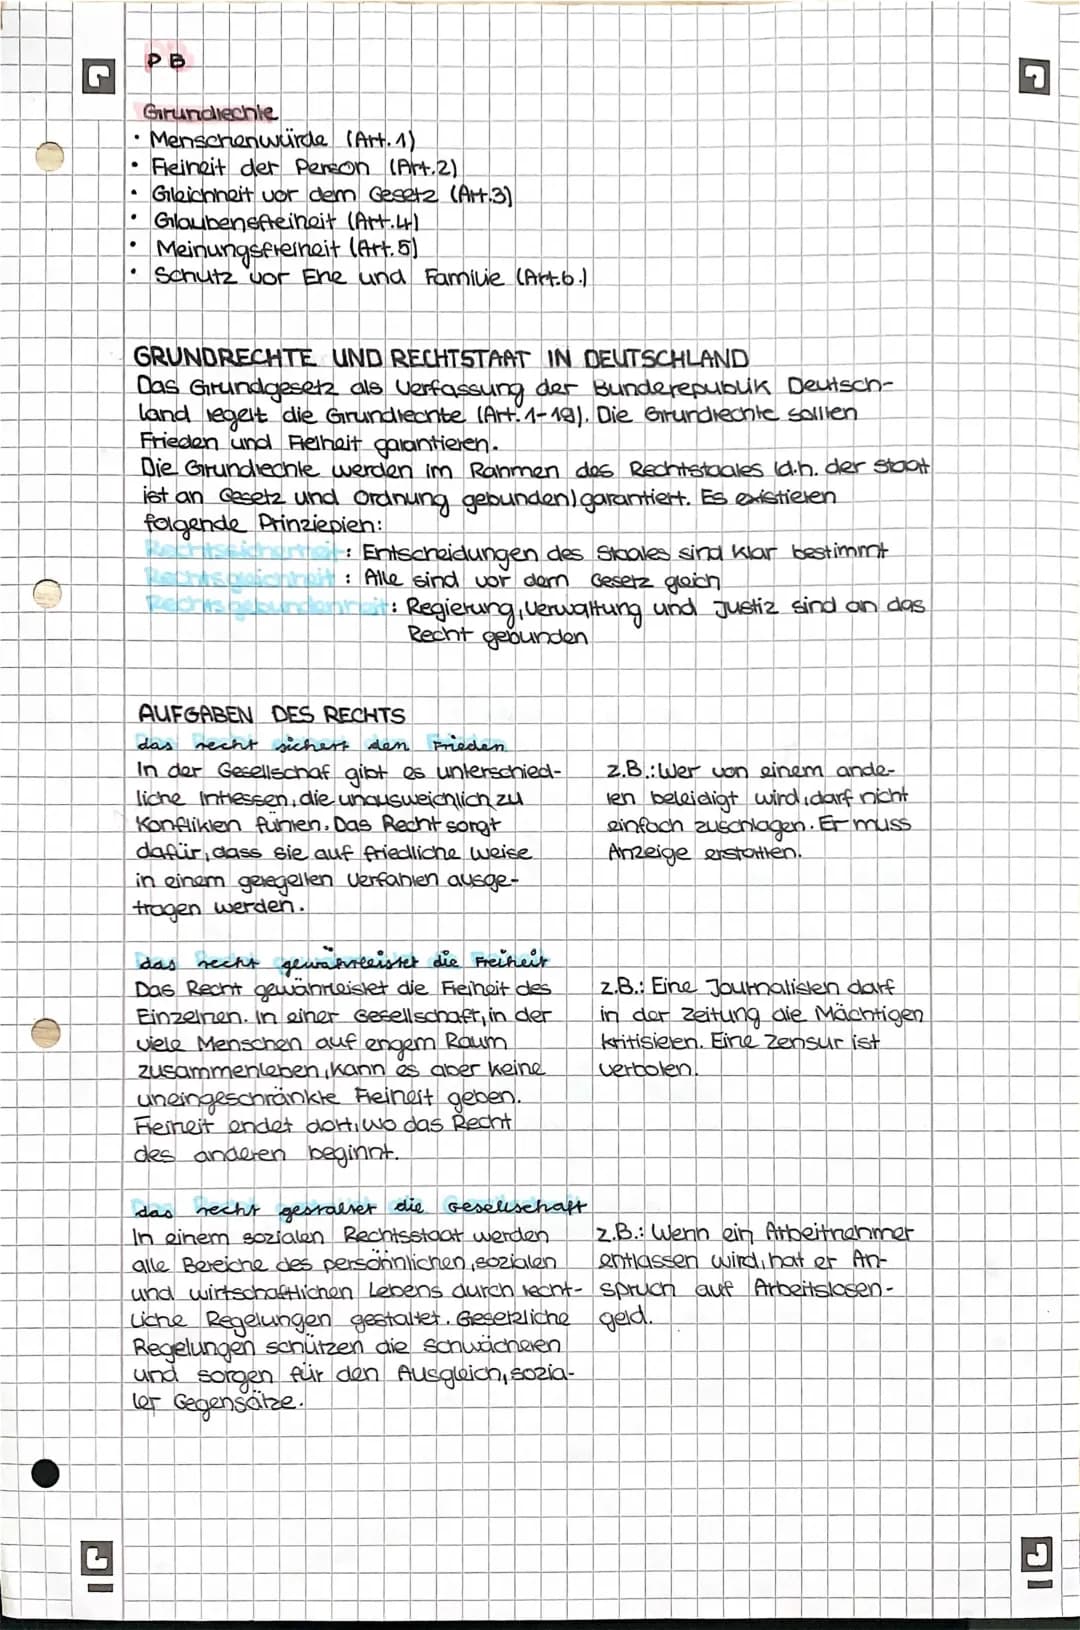 PB
Grundrechte
• Menschenwürde (Art. 1)
• Freiheit der Person (Art.2)
• Gleichheit vor dem Gesetz (Art.3)
• Glaubensfreiheit (Art.4)
• Meinungsfreiheit (Art. 5)
• Schutz vor Ehe und Familie (Art.6.)
GRUNDRECHTE UND RECHTSTAAT IN DEUTSCHLAND
Das Grundgesetz als Verfassung der Bunderepublik Deutsch-
land regelt die Grundrechte (Art. 1-19). Die Grundrechte sollen
Frieden und Freiheit garantieren.
Die Grundrechte werden im Rahmen des Rechtstaates (d.h. der Staat
ist an Gesetz und Ordnung gebunden) garantiert. Es existieren
folgende Prinziepien:
Rechtssicherheit: Entscheidungen des Staates sind klar bestimmt
Rechtsgleichheit: Alle sind vor dem Gesetz gleich
Rechtsgebundenheit: Regierung, Verwaltung und Justiz sind an das
Recht gebunden
AUFGABEN DES RECHTS
das recht sichert den Frieden
In der Gesellschaf gibt es unterschied-
liche Intressen, die unausweichlich zu
Konflikten führen. Das Recht sorgt
dafür, dass sie auf friedliche weise
in einem geregelten Verfahren ausge-
tragen werden.
z.B.: Wer von einem ande-
ren beleidigt wird, darf nicht
einfach zuschlagen. Er muss
Anzeige erstatten.
das recht gewährleistet die Freiheit
Das Recht gewährleistet die Freiheit des
Einzelnen. In einer Gesellschaft, in der
viele Menschen auf engem Raum
zusammenleben, kann es aber keine
uneingeschränkte Freiheit geben.
Freiheit endet dort, wo das Recht
des anderen beginnt.
z.B.: Eine Journalisten darf
in der Zeitung die Mächtigen
kritisieren. Eine Zensur ist
verboten.
das recht gestaltet die Gesellschaft
In einem sozialen Rechtsstaat werden
alle Bereiche des persöhnlichen, sozialen
und wirtschaftlichen Lebens durch recht-
liche Regelungen gestaltet. Gesetzliche
Regelungen schützen die schwächeren
und sorgen für den Ausgleich, sozia-
ler Gegensätze.
z.B.: Wenn ein Arbeitnehmer
entlassen wird, hat er An-
spruch auf Arbeitslosen-
geld.